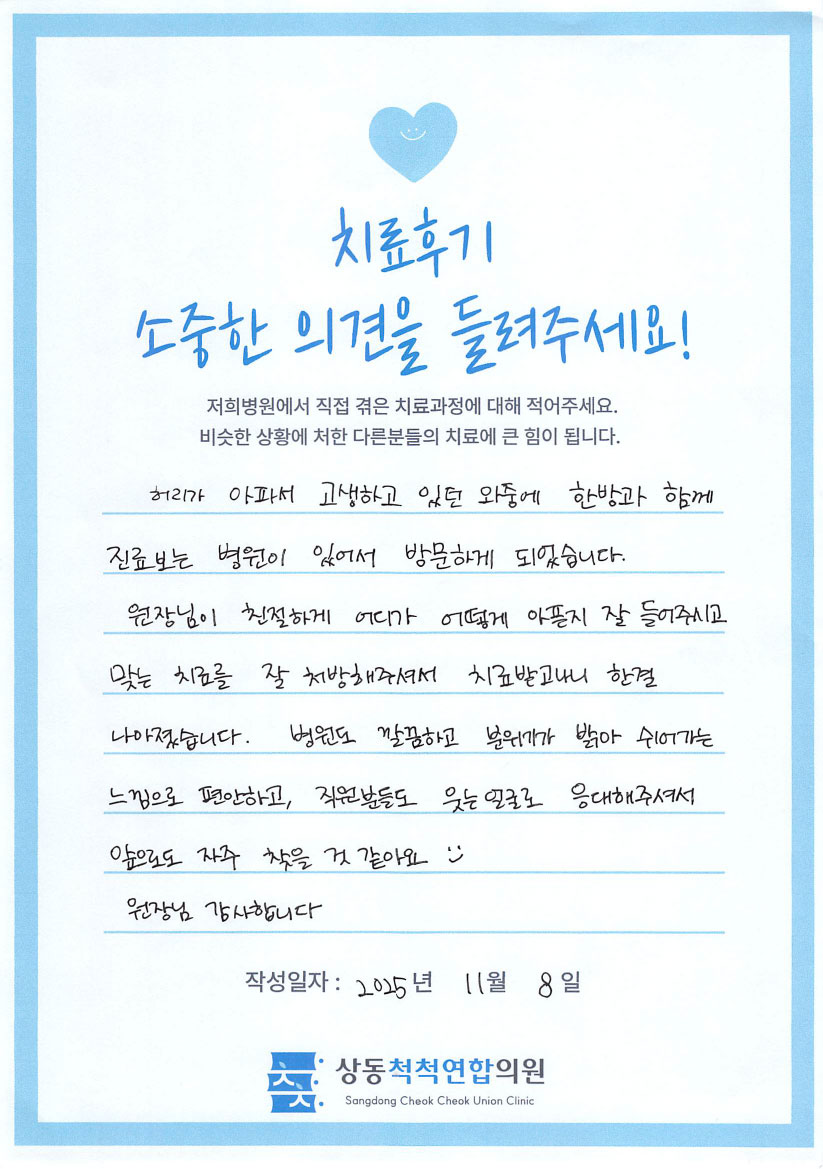 치료후기
소중한 의견을 들려주세요!
저희병원에서 직접 겪은 치료과정에 대해 적어주세요.
비슷한 상황에 처한 다른분들의 치료에 큰 힘이 됩니다.
허리가 아파서 고생하고 있던 와중에 한방과 함께
진료보는 병원이 있어서 방문하게 되었습니다.
원장님이 친절하게 어디가 어떻게 아픈지 잘 들어주시고
맞는 치료를 잘 처방해주셔서 치료받고나니 한결
나아졌습니다. 병원도 깔끔하고 분위기가 밝아 쉬어가는
느낌으로 편안하고, 직원분들도 웃는 얼굴로 응대해주셔서
앞으로도 자주 찾을 것 같아요 :)
원장님 감사합니다
작성일자 : 2025년 11월 8일
상동척척연합의원
Sangdong Cheok Cheok Union Clinic